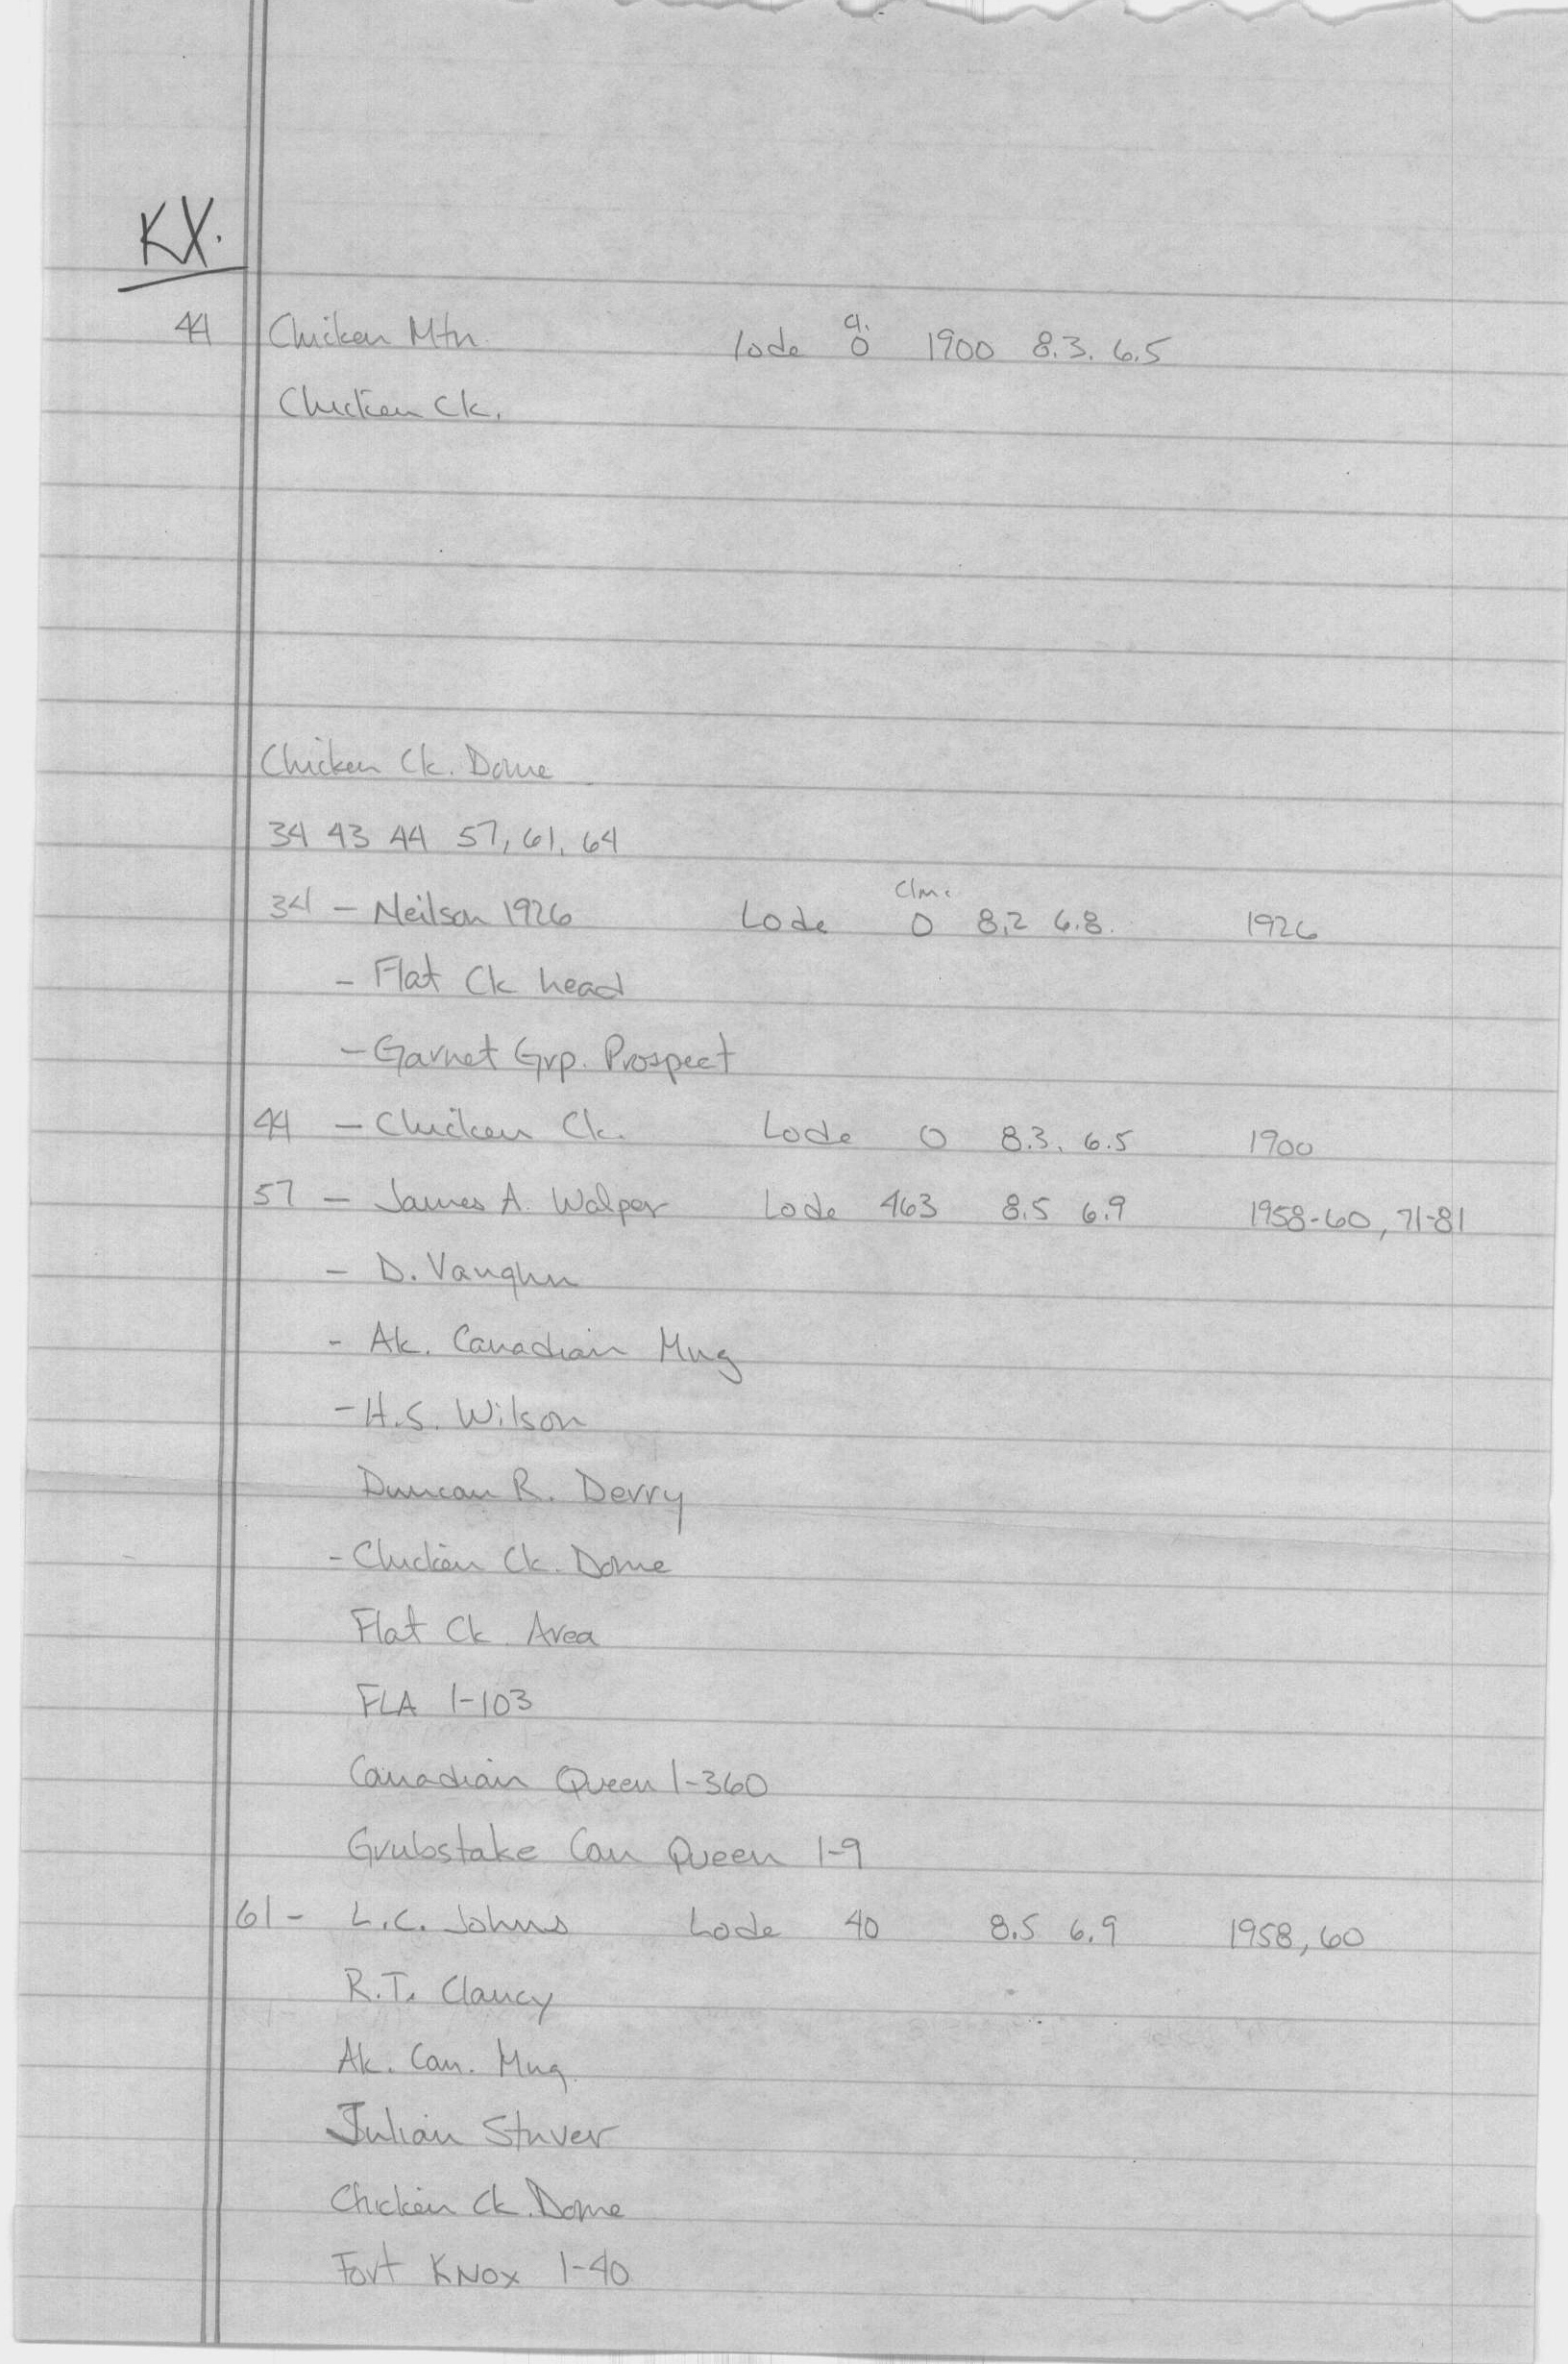 KX.
44 Chicken Mtn. lode cl. 0 1900 8.3. 6.5
Chicken Ck.
Chicken Ck. Dome
34 43 44 57, 61, 64
34 - Neilson 1926 Lode Clm. 0 8.2 6.8. 1926
- Flat Ck head
- Garnet Grp. Prospect
44 - Chicken Ck. Lode 0 8.3. 6.5 1900
57 - James A. Walper Lode 463 8.5 6.9 1958-60, 71-81
- D. Vaughn
- Ak. Canadian Mng
- H.S. Wilson
Duncan R. Derry
- Chicken Ck. Dome
Flat Ck. Area
FLA 1-103
Canadian Queen 1-360
Grubstake Can Queen 1-9
61 - L.C. Johns Lode 40 8.5 6.9 1958, 60
R.T. Clancy
Ak. Can. Mng.
Julian Stuver
Chicken Ck. Dome
Fort Knox 1-40